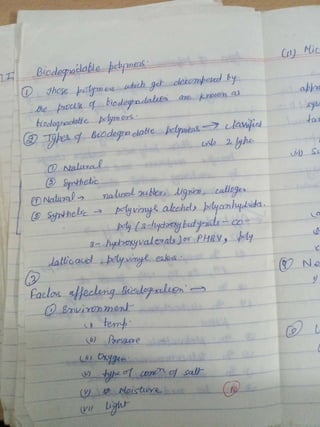 Biodegradable polymers.
① Those polymers which get decomposed by
the process of biodegradation are known as
biodegradable polymers.
② Types of Biodegradable polymers → classified
into 2 type.
① Natural
② Synthetic
① Natural → natural rubber, lignin, collagen
② Synthetic → polyvinyl alcohol, polyanhydride.
poly (3-hydroxybutyrate - co
3- hydroxyvalerate) or PHBV, poly
lactic acid, polyvinyl ester.
③
Factor affecting Biodegration →
① Environment
(i) temp.
(ii) Pressure
(iii) Oxygen
type of conc. of salt
(v) Moisture
(vii) light
(ii) Mic